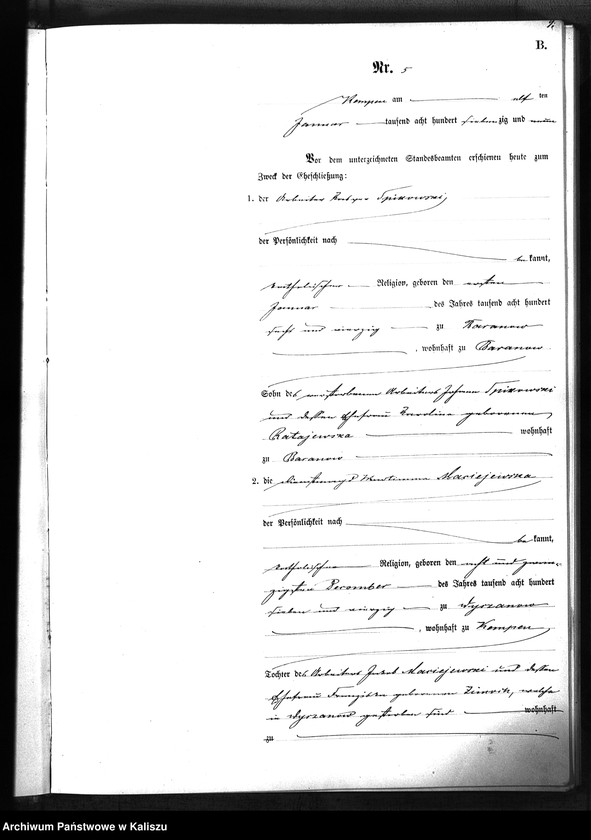 B.
Nr. 5
Kempen am elf ten
Januar tausend acht hundert siebenzig und neun
Vor dem unterzeichneten Standesbeamten erschienen heute zum
Zweck der Eheschließung:
1. der Arbeiter
der Persönlichkeit nach
be kannt,
katholischer Religion, geboren den ersten
Januar des Jahres tausend acht hundert
sechs und vierzig zu Baranow
, wohnhaft zu Baranow
Sohn des verstorbenen Arbeiters Johann
und dessen Ehefrau Karolina geborenen
Ratajewska wohnhaft
zu Baranow
2. die Maciejewska
der Persönlichkeit nach
be kannt,
katholischer Religion, geboren den acht und zwan-
zigsten December des Jahres tausend acht hundert
sieben und vierzig zu
, wohnhaft zu Kempen
Tochter des Arbeiters Maciejewski und dessen
Ehefrau geborenen welche
in gestorben sind wohnhaft
zu
Archiwum Państwowe w Kaliszu